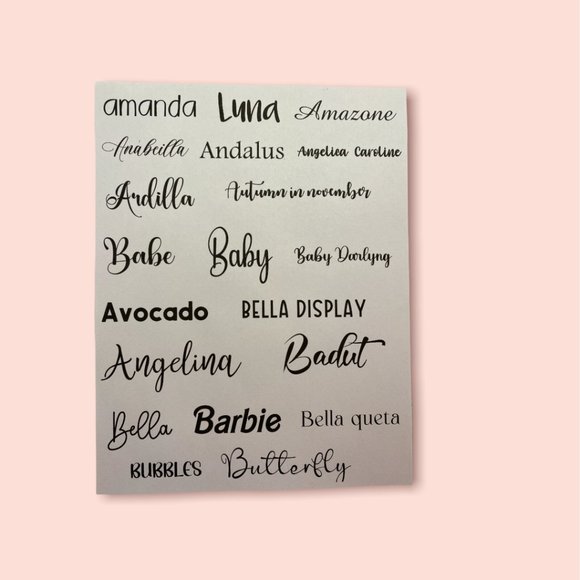 amanda Luna Amazone
Anabeilla Andalus Angelica Caroline
Ardilla Autumn in november
Babe Baby Baby Darlyng
Avocado BELLA DISPLAY
Angelina Badut
Bella Barbie Bella queta
BUBBLES Butterfly